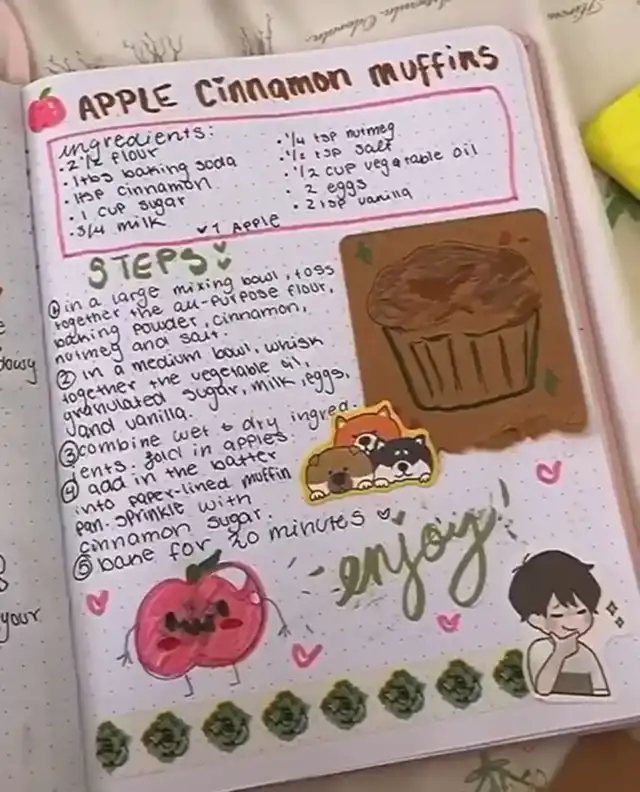 APPLE Cinnamon muffins
ingredients:
• 2 1/2 flour
• 1 tbs baking soda
• 1tsp cinnamon
• 1 cup sugar
• 3/4 milk
• 1/4 tsp nutmeg
• 1/2 tsp salt
• 1/2 cup vegetable oil
• 2 eggs
• 2 tsp vanilla
♥ 1 Apple
STEPS!
① in a large mixing bowl, toss
together the all-purpose flour,
baking powder, cinnamon,
nutmeg and salt.
② in a medium bowl, whisk
together the vegetable oil,
granulated sugar, milk, eggs,
and vanilla.
③ combine wet & dry ingred-
ients. fold in apples
④ add in the batter
into paper-lined muffin
pan. sprinkle with
cinnamon sugar.
⑤ bake for 20 minutes ♥
enjoy!
your